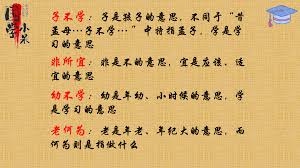 国学小呆
子不学：子是孩子的意思，不同于“昔
孟母…子不学…”中特指孟子，学是学
习的意思
非所宜：非是不的意思，宜是应该、适
宜的意思
幼不学：幼是年幼、小时候的意思，学
是学习的意思
老何为：老是年老、年纪大的意思，而
何为则是指做什么